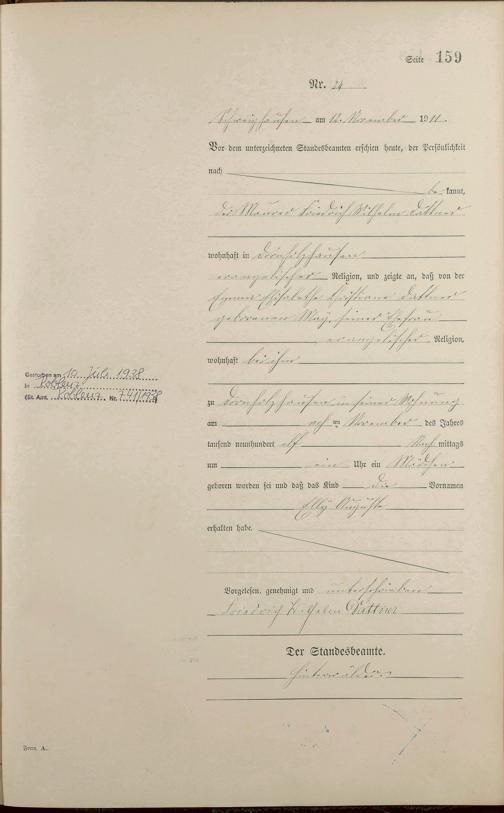 Seite 159
Nr. 24
Schweighausen am 12. November 1911.
Vor dem unterzeichneten Standesbeamten erschien heute, der Persönlichkeit
nach
be kannt,
der Maurer Friedrich Wilhelm Dattner
wohnhaft in Dornholzhausen
evangelischer Religion, und zeigte an, daß von der
Emma Elisabethe Christiane Dattner
geborenen May, seiner Ehefrau
evangelischer Religion,
wohnhaft bei ihm
zu Dornholzhausen in seiner Wohnung
am ten November des Jahres
tausend neunhundert elf Nach mittags
um ein Uhr ein Mädchen
geboren worden sei und daß das Kind die Vornamen
Elly Auguste
erhalten habe.
Vorgelesen, genehmigt und unterschrieben
Friedrich Wilhelm Dattner
Der Standesbeamte.
Gestorben am 10. Juli 1938
in Koblenz
(St. Amt. Koblenz Nr. 741/1938)
Form. A.